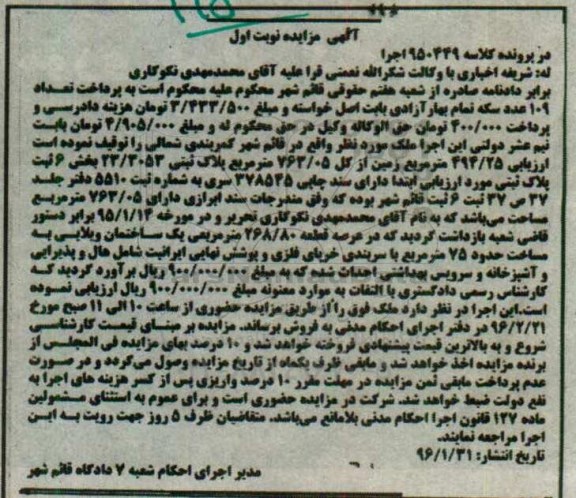 آگهی مزایده نوبت اول
در پرونده کلاسه ۹۵۰۴۴۹ اجرا
له: شریفه اخباری با وکالت شکرالله نعمتی فرا علیه آقای محمدمهدی نکوکاری
برابر دادنامه صادره از شعبه هفتم حقوقی قائم شهر محکوم علیه محکوم است به پرداخت تعداد
۱۰۹ عدد سکه تمام بهار آزادی بابت اصل خواسته و مبلغ ۳/۴۳۳/۵۰۰ تومان هزینه دادرسی و
پرداخت ۴۰۰/۰۰۰ تومان حق الوکاله وکیل در حق محکوم له و مبلغ ۴/۹۰۵/۰۰۰ تومان بابت
نیم عشر دولتی این اجرا ملک مورد نظر واقع در قائم شهر کمربندی شمالی را توقیف نموده است
ارزیابی ۴۹۴/۲۵ مترمربع زمین از کل ۷۶۳/۰۵ مترمربع پلاک ثبتی ۲۳/۳۰۵۳ بخش ۶ ثبت
پلاک ثبتی مورد ارزیابی ابتدا دارای سند چاپی ۳۷۸۵۴۵ سری به شماره ثبت ۵۵۱۰ دفتر جلد
۳۷ ص ۳۷ ثبت ۶ ثبت قائم شهر بوده که وفق مندرجات سند ابرازی دارای ۷۶۳/۰۵ مترمربع
مساحت می‌باشد که به نام آقای محمدمهدی نکوکاری تحریر و در مورخه ۹۵/۱/۱۴ برابر دستور
قاضی شعبه بازداشت گردید که در عرصه قطعه ۲۶۸/۸۰ مترمربعی یک ساختمان ویلایی به
مساحت حدود ۷۵ مترمربع با سربندی خرپای فلزی و پوشش نهایی ایرانیت شامل هال و پذیرایی
و آشپزخانه و سرویس بهداشتی احداث شده که به مبلغ ۹۰۰/۰۰۰/۰۰۰ ریال برآورد گردید که
کارشناس رسمی دادگستری با التفات به موارد معنونه مبلغ ۹۰۰/۰۰۰/۰۰۰ ریال ارزیابی نموده
است.این اجرا در نظر دارد ملک فوق را از طریق مزایده حضوری از ساعت ۱۰ الی ۱۱ صبح مورخ
۹۶/۲/۲۱ در دفتر اجرای احکام مدنی به فروش برساند. مزایده بر مبنای قیمت کارشناسی
شروع و به بالاترین قیمت پیشنهادی فروخته خواهد شد و ۱۰ درصد بهای مزایده فی المجلس از
برنده مزایده اخذ خواهد شد و مابقی ظرف یکماه از تاریخ مزایده وصول می‌گردد و در صورت
عدم پرداخت مابقی ثمن مزایده در مهلت مقرر ۱۰ درصد واریزی پس از کسر هزینه های اجرا به
نفع دولت ضبط خواهد شد. شرکت در مزایده حضوری است و برای عموم به استثنای مشمولین
ماده ۱۲۷ قانون اجرا احکام مدنی بلامانع می‌باشد. متقاضیان ظرف ۵ روز جهت رویت به این
اجرا مراجعه نمایند.
تاریخ انتشار: ۹۶/۱/۳۱
مدیر اجرای احکام شعبه ۷ دادگاه قائم شهر